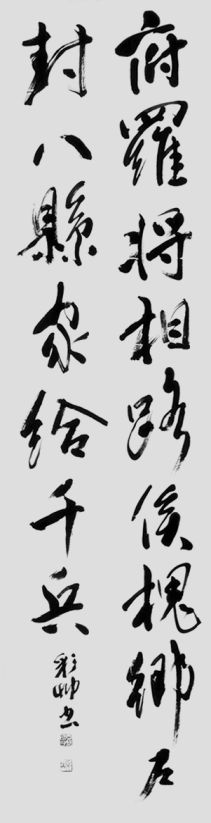 府羅將相路俠槐卿戶
封八縣家給千兵